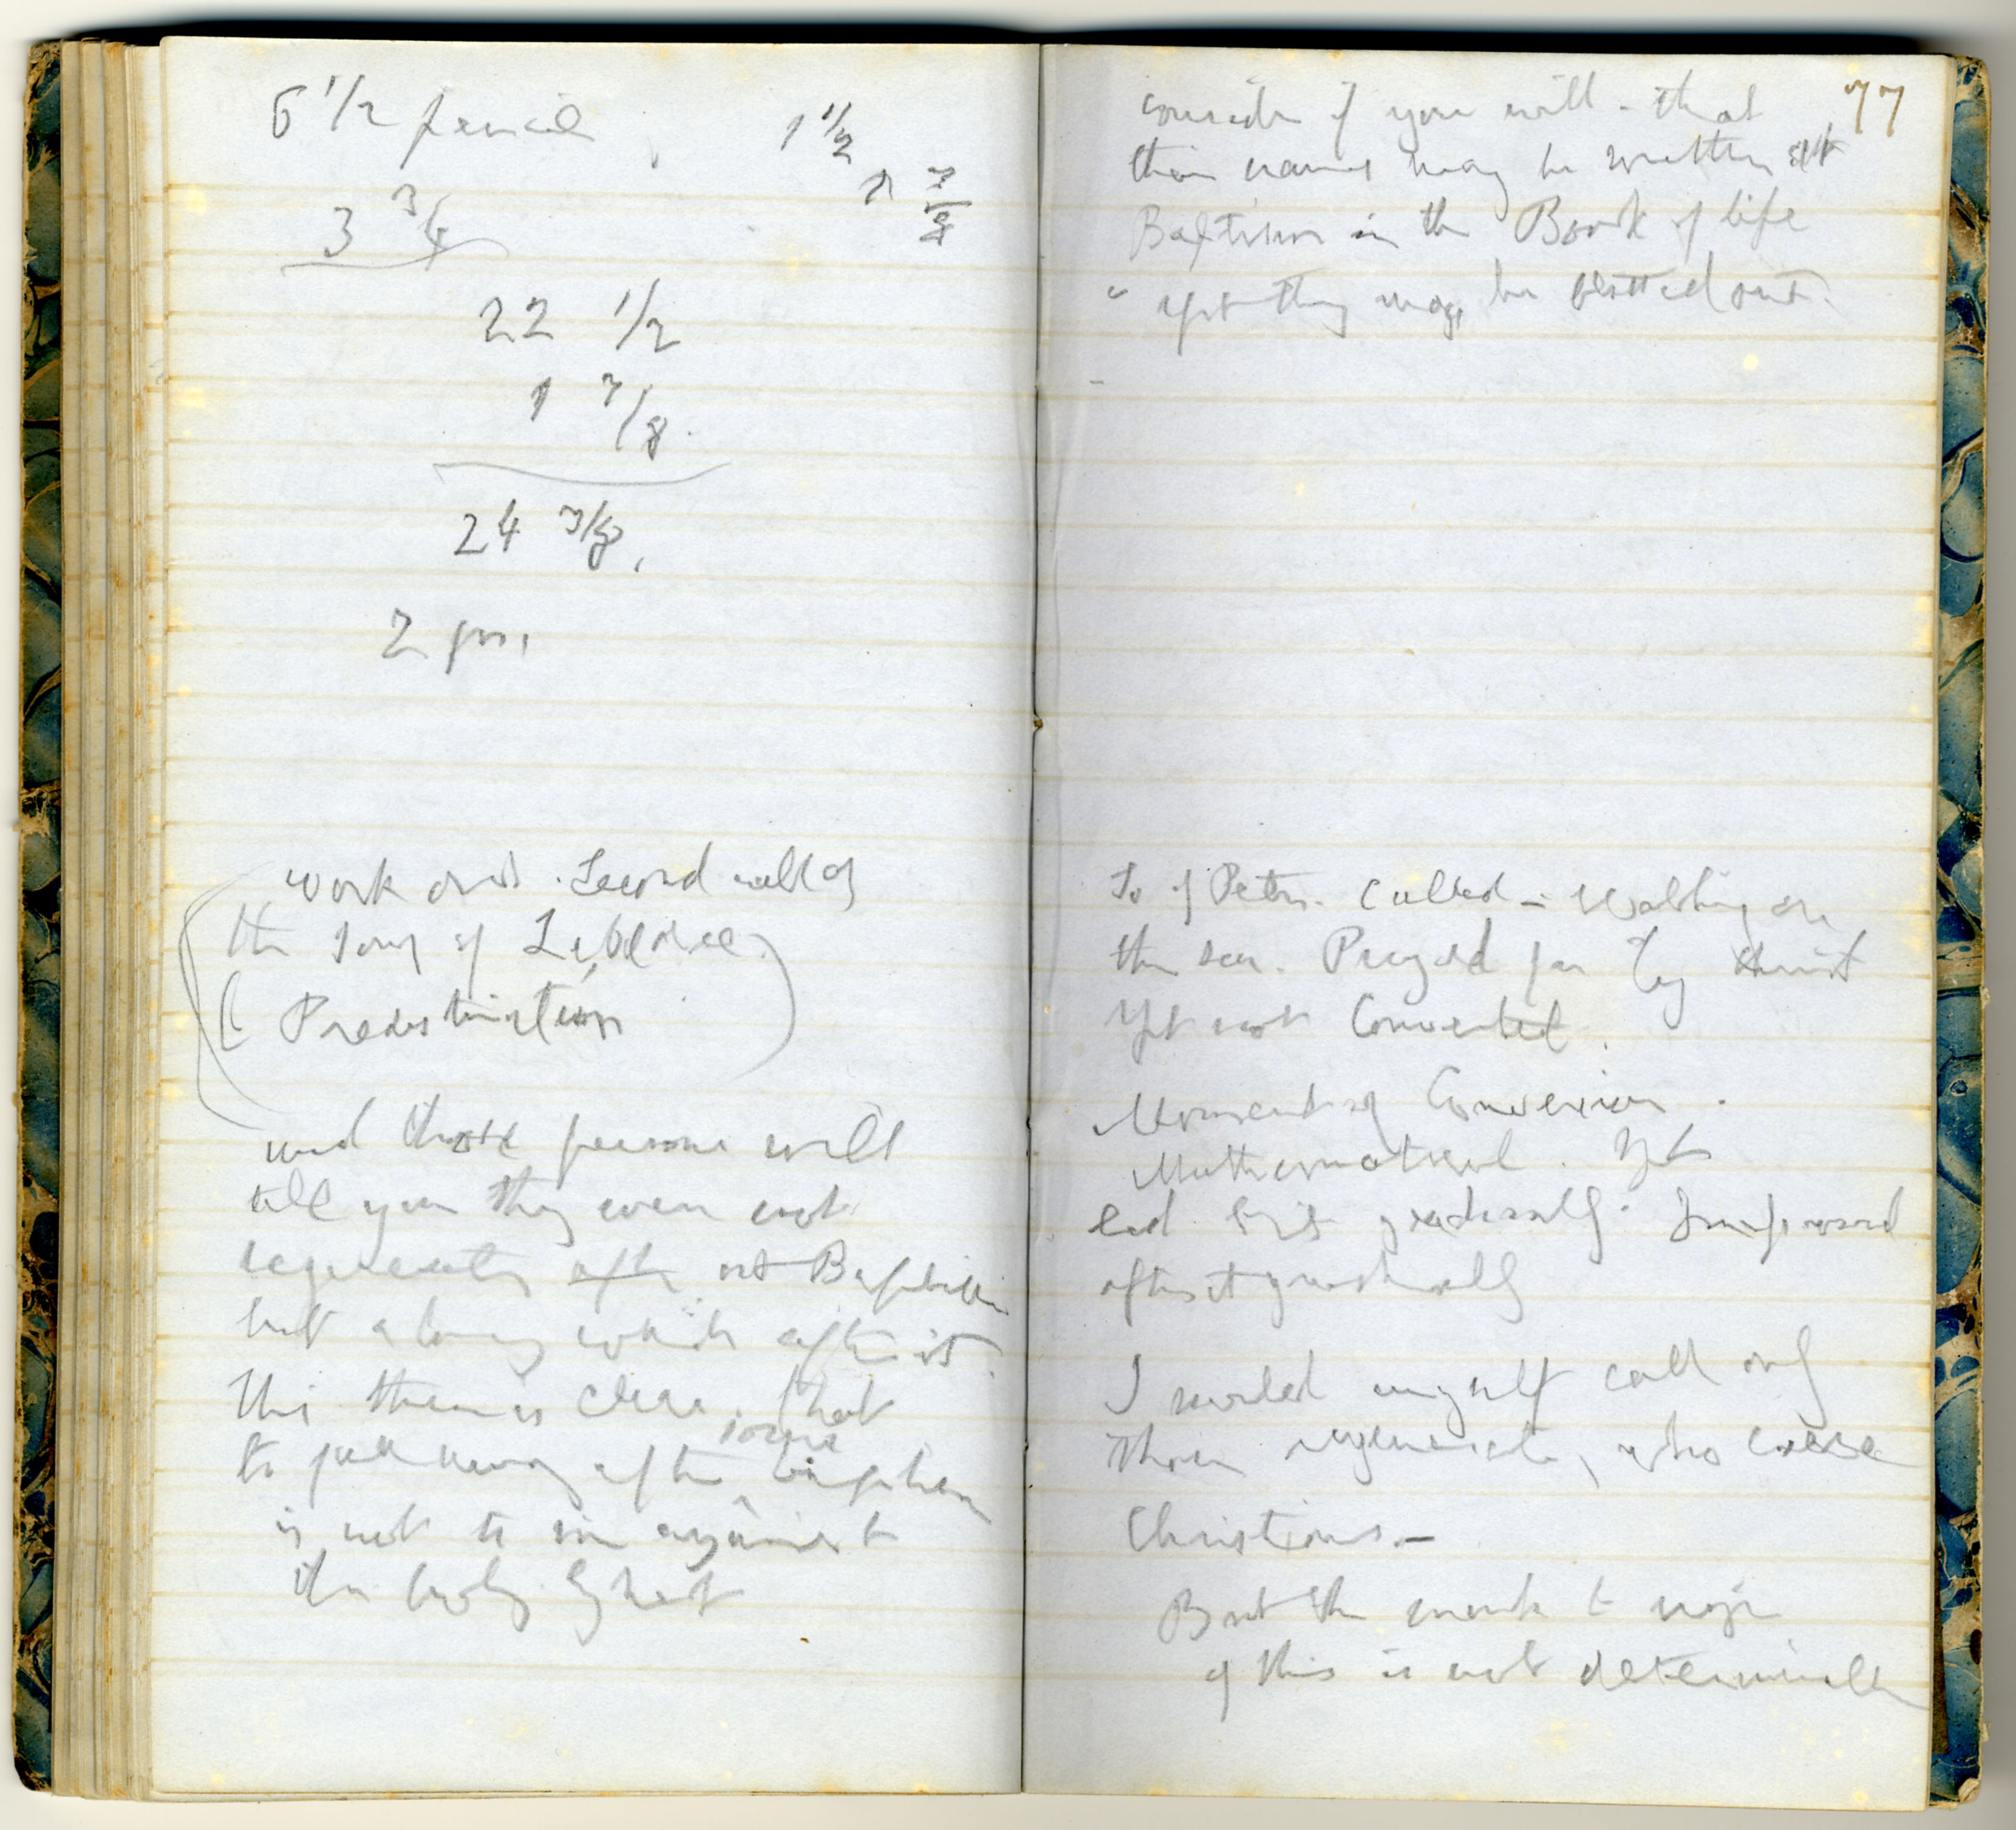 6 1/2 pencil
1 1/2
3 3/4
22 1/2
1 7/8
24 3/8.
2 
work out. Second call of
the sons of Zebedee.
( Predestination
and those persons will
tell you they were not
regenerate after at Baptism
but a long while after it.
This then is clear. that
to fall away after some baptism
is not to sin against
the holy ghost
77
consider if you will - that
their names may be written at
Baptism in the Book of life
yet they may be blotted out.
So of Peter. Called - Walking on
the sea. Prayed for by Christ
Yet not Converted.
Moment of Conversion.
Mathematical. Yet
led gradually. Improved
after it gradually
I would myself call only
them regenerate, who were
Christians -
But the
of this is not determinable